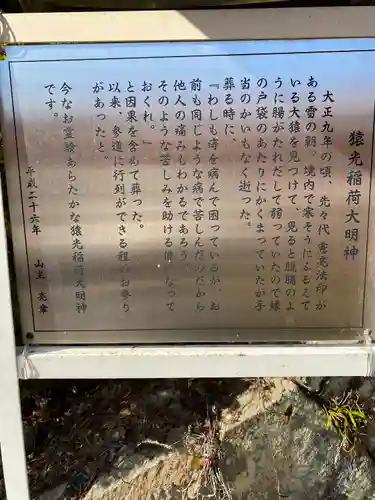 猿光稲荷大明神
大正九年の頃、先々代亮亮法印が
ある雪の朝、境内で寒そうにふるえて
いる大猿を見つけて、見ると脱腸のよ
うに腸がたれだして弱っていたので縁
の戸袋のあたりにかくまっていたが手
当のかいもなく逝った。
葬る時に、
『わしも痔を病んで困っているが、お
前も同じような病で苦しんだのだから
他人の痛みもわかるであろう。
そのような苦しみを助ける神になって
おくれ。』
と因果を含めて葬った。
以来、参道に行列ができる程のお参り
があったと。
今なお霊験あらたかな猿光稲荷大明神
です。
平成二十六年 山主 亮